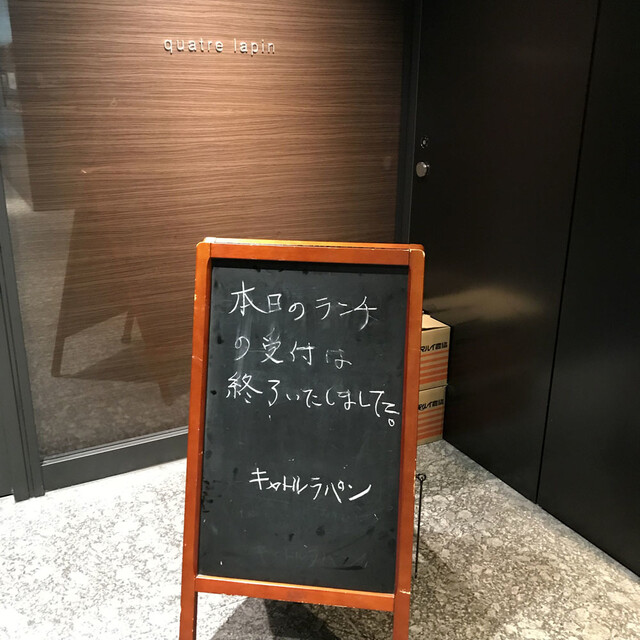 quatre lapin
本日のランチ
の受付は
終了いたしました。
キャトルラパン
マルイ食品